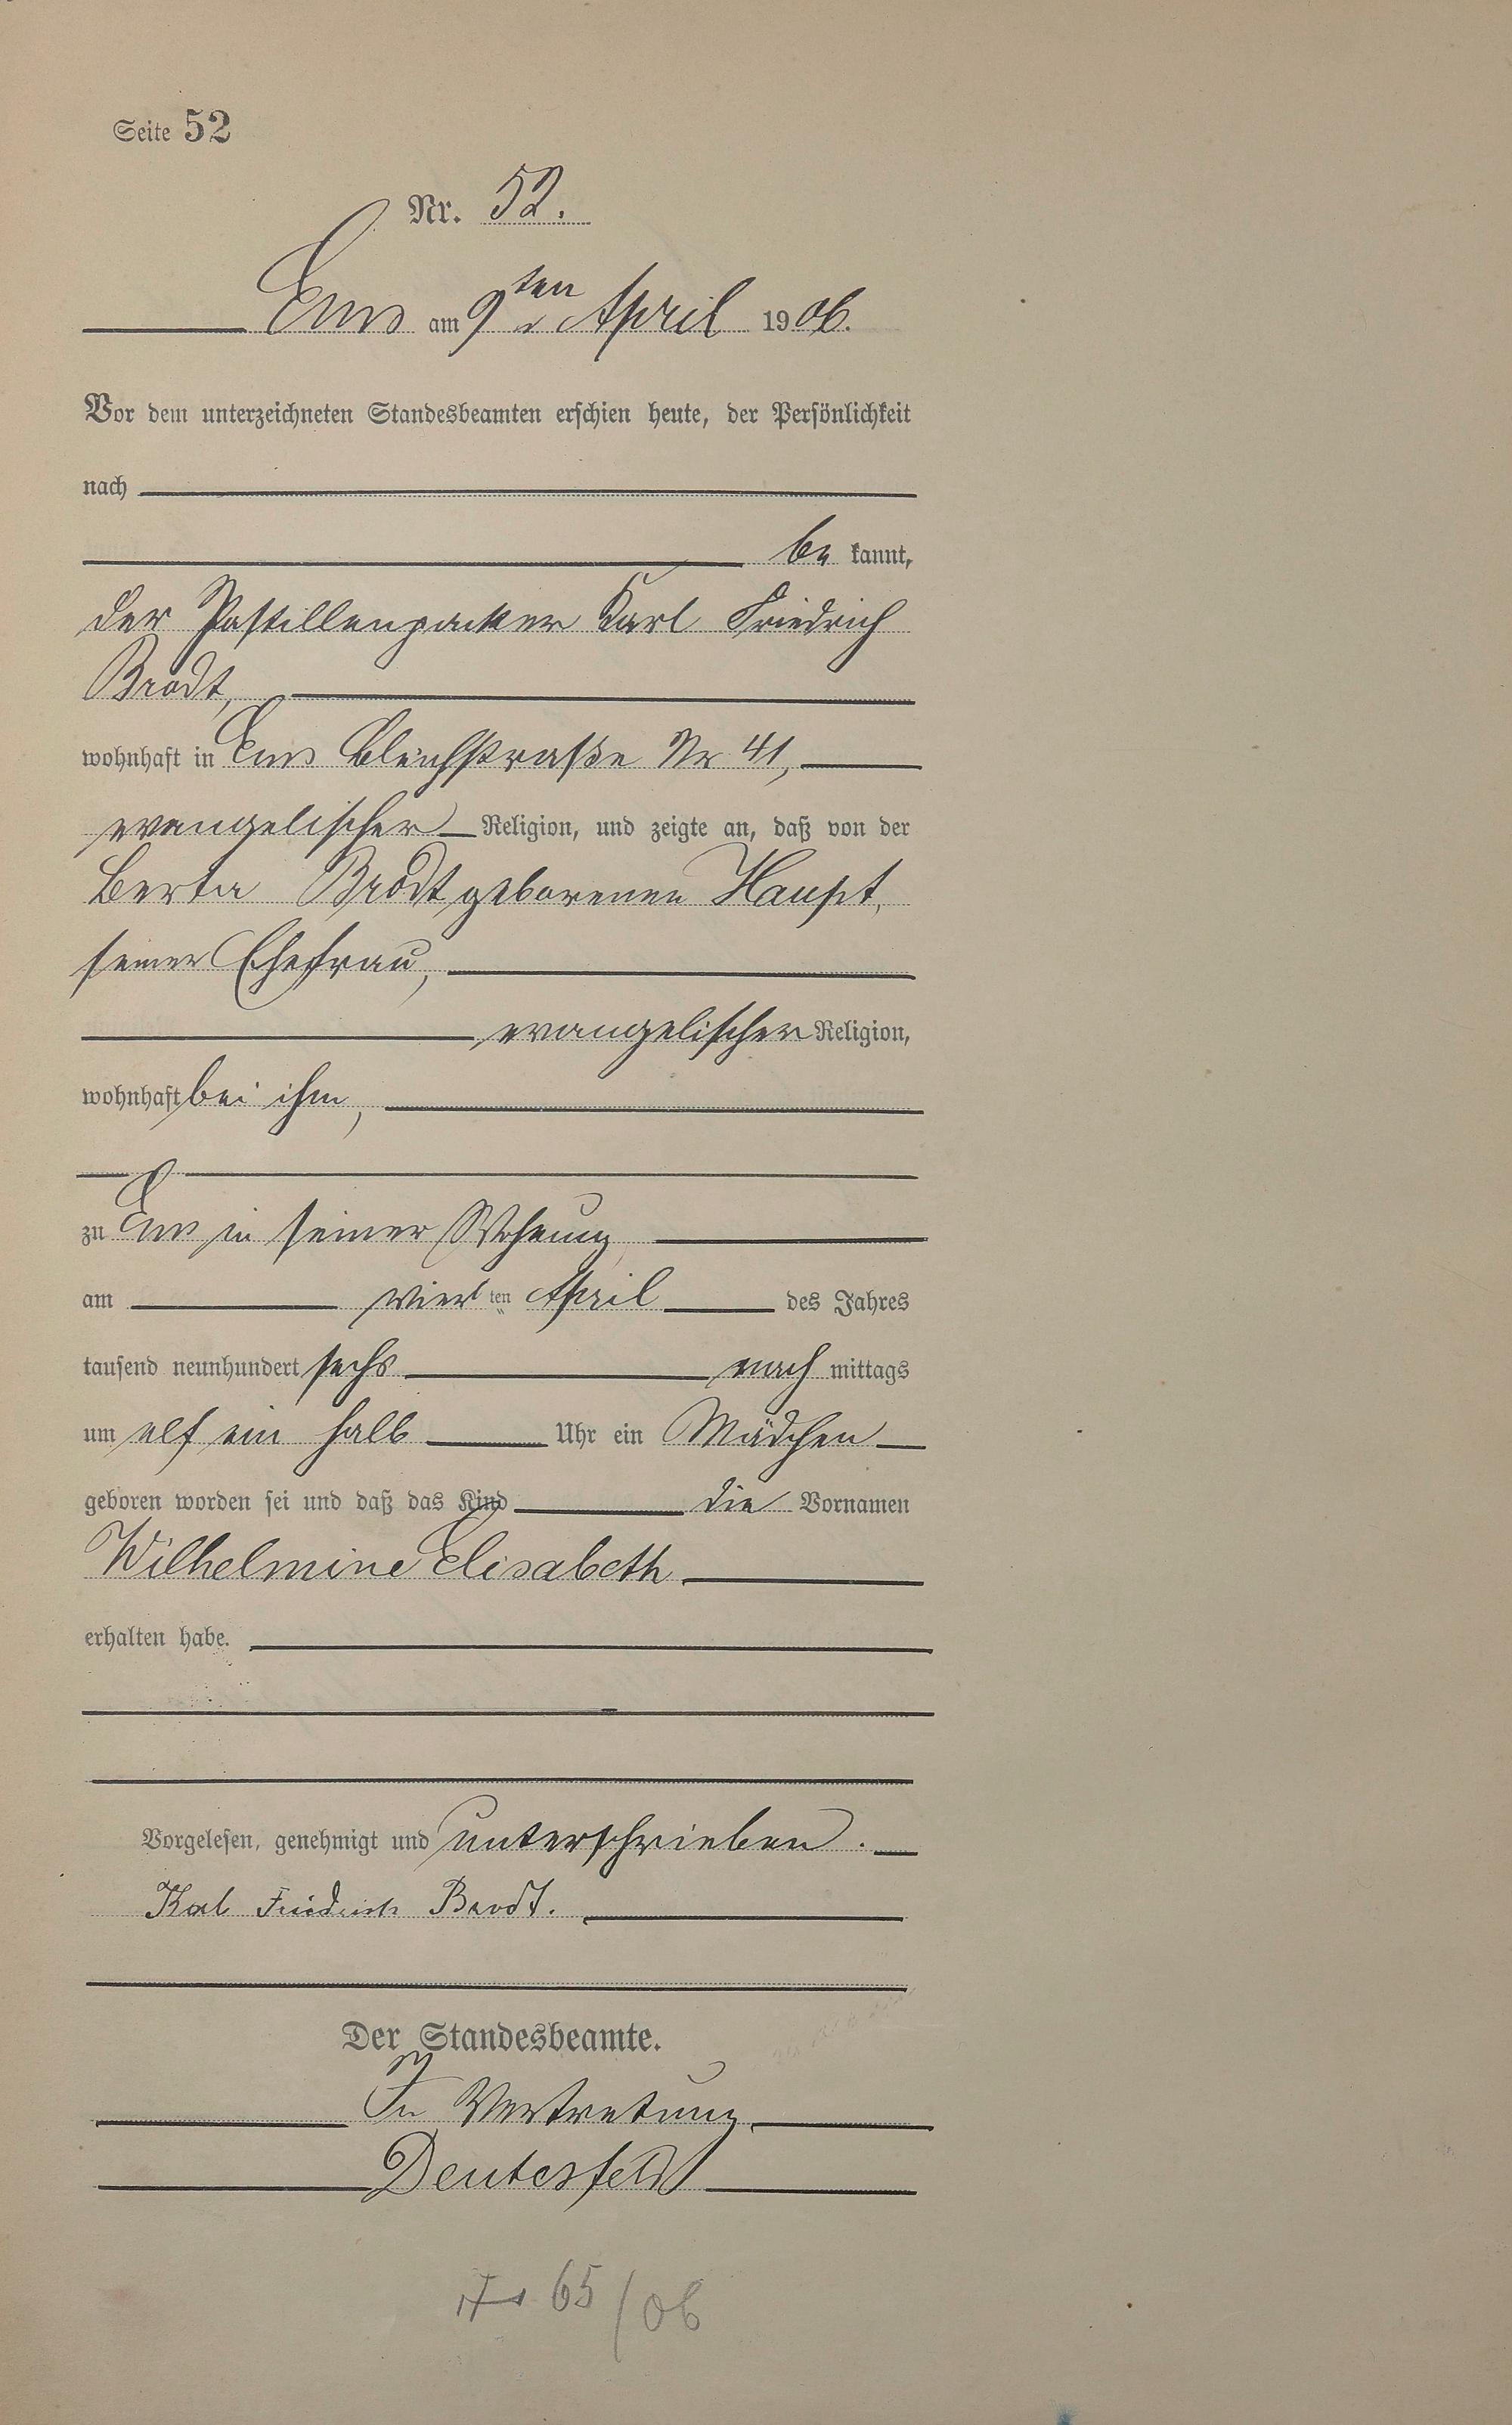 Seite 52
Nr. 52.
Ems am 9ten April 1906.
Vor dem unterzeichneten Standesbeamten erschien heute, der Persönlichkeit
nach
be kannt,
der Pastillenpacker Karl Friedrich
Brodt,
wohnhaft in Ems Bleichstraße Nr 41,
evangelischer Religion, und zeigte an, daß von der
Berta Brodt geborenen Haupt,
seiner Ehefrau,
evangelischer Religion,
wohnhaft bei ihm,
zu Ems in seiner Wohnung
am vier ten April des Jahres
tausend neunhundert sechs nach mittags
um elf ein halb Uhr ein Mädchen
geboren worden sei und daß das Kind die Vornamen
Wilhelmine Elisabeth
erhalten habe.
Vorgelesen, genehmigt und unterschrieben.
Karl Friedrich Brodt.
Der Standesbeamte.
In Vertretung
Deutesfeld
65/06